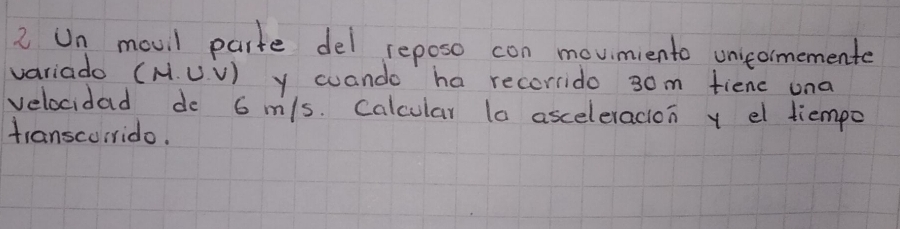 2 Un movil parte del reposo con movimiento uniformemente
variado (M.U.V) y cuando ha recorrido 30 m tiene una
velocidad de 6 m/s. Calcular la asceleración y el tiempo
transcurrido.